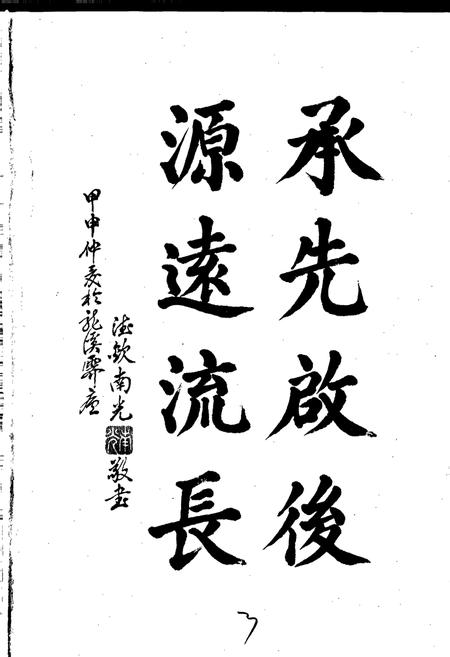 承先啟後
源遠流長
甲申仲夏於龍溪霽廬
德欽南光
南光
敬書
3